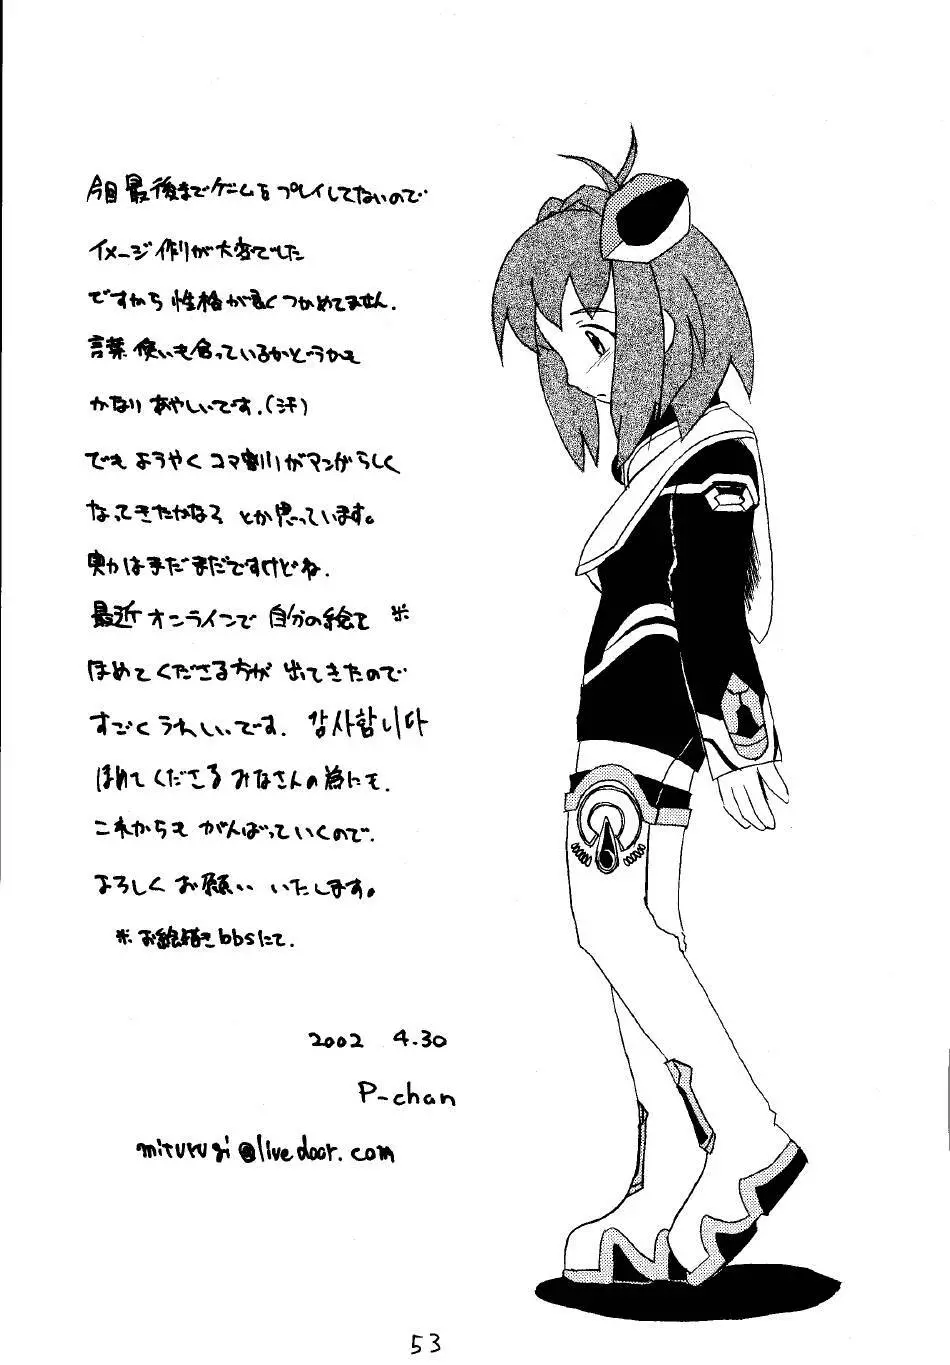 今回 最後までゲームを プレイしてないので
イメージ作りが大変でした
ですから 性格が良く つかめてません.
言葉 使いも合っているかどうかも
かなり あやしいです.(汗)
でも ようやく コマ割りがマンガらしく
なってきたかなろ とか思っています。
実力はまだまだですけどね.
最近 オンラインで 自分の絵を ※
ほめてくださる方が 出てきたので
すごくうれしいです. 감사합니다
ほめてくださる みなさんの為にも.
これからも がんばっていくので.
よろしく お願い いたします。
※ お絵描きbbsにて.
2002 4.30
P-chan
miturugi@livedoor.com
53